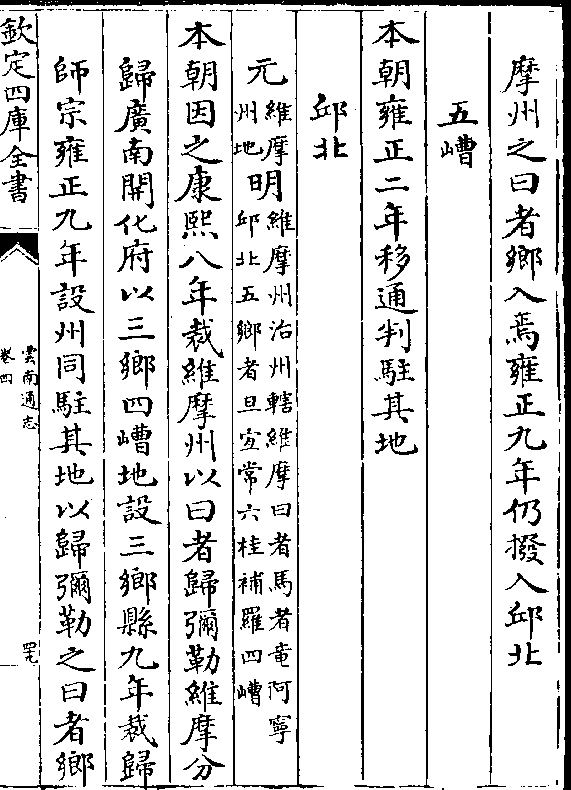 摩州之曰者鄉入焉雍正九年仍撥入邱北
五嶆
本朝雍正二年移通判駐其地
邱北
元維摩州地明維摩州治州轄維摩曰者馬者竜阿寧邱北五鄉者旦宣常六桂補羅四嶆
本朝因之康熙八年裁維摩州以曰者歸彌勒維摩分
歸廣南開化府以三鄉四嶆地設三鄉縣九年裁歸
師宗雍正九年設州同駐其地以歸彌勒之曰者鄉
欽定四庫全書
雲南通志
卷四
四九